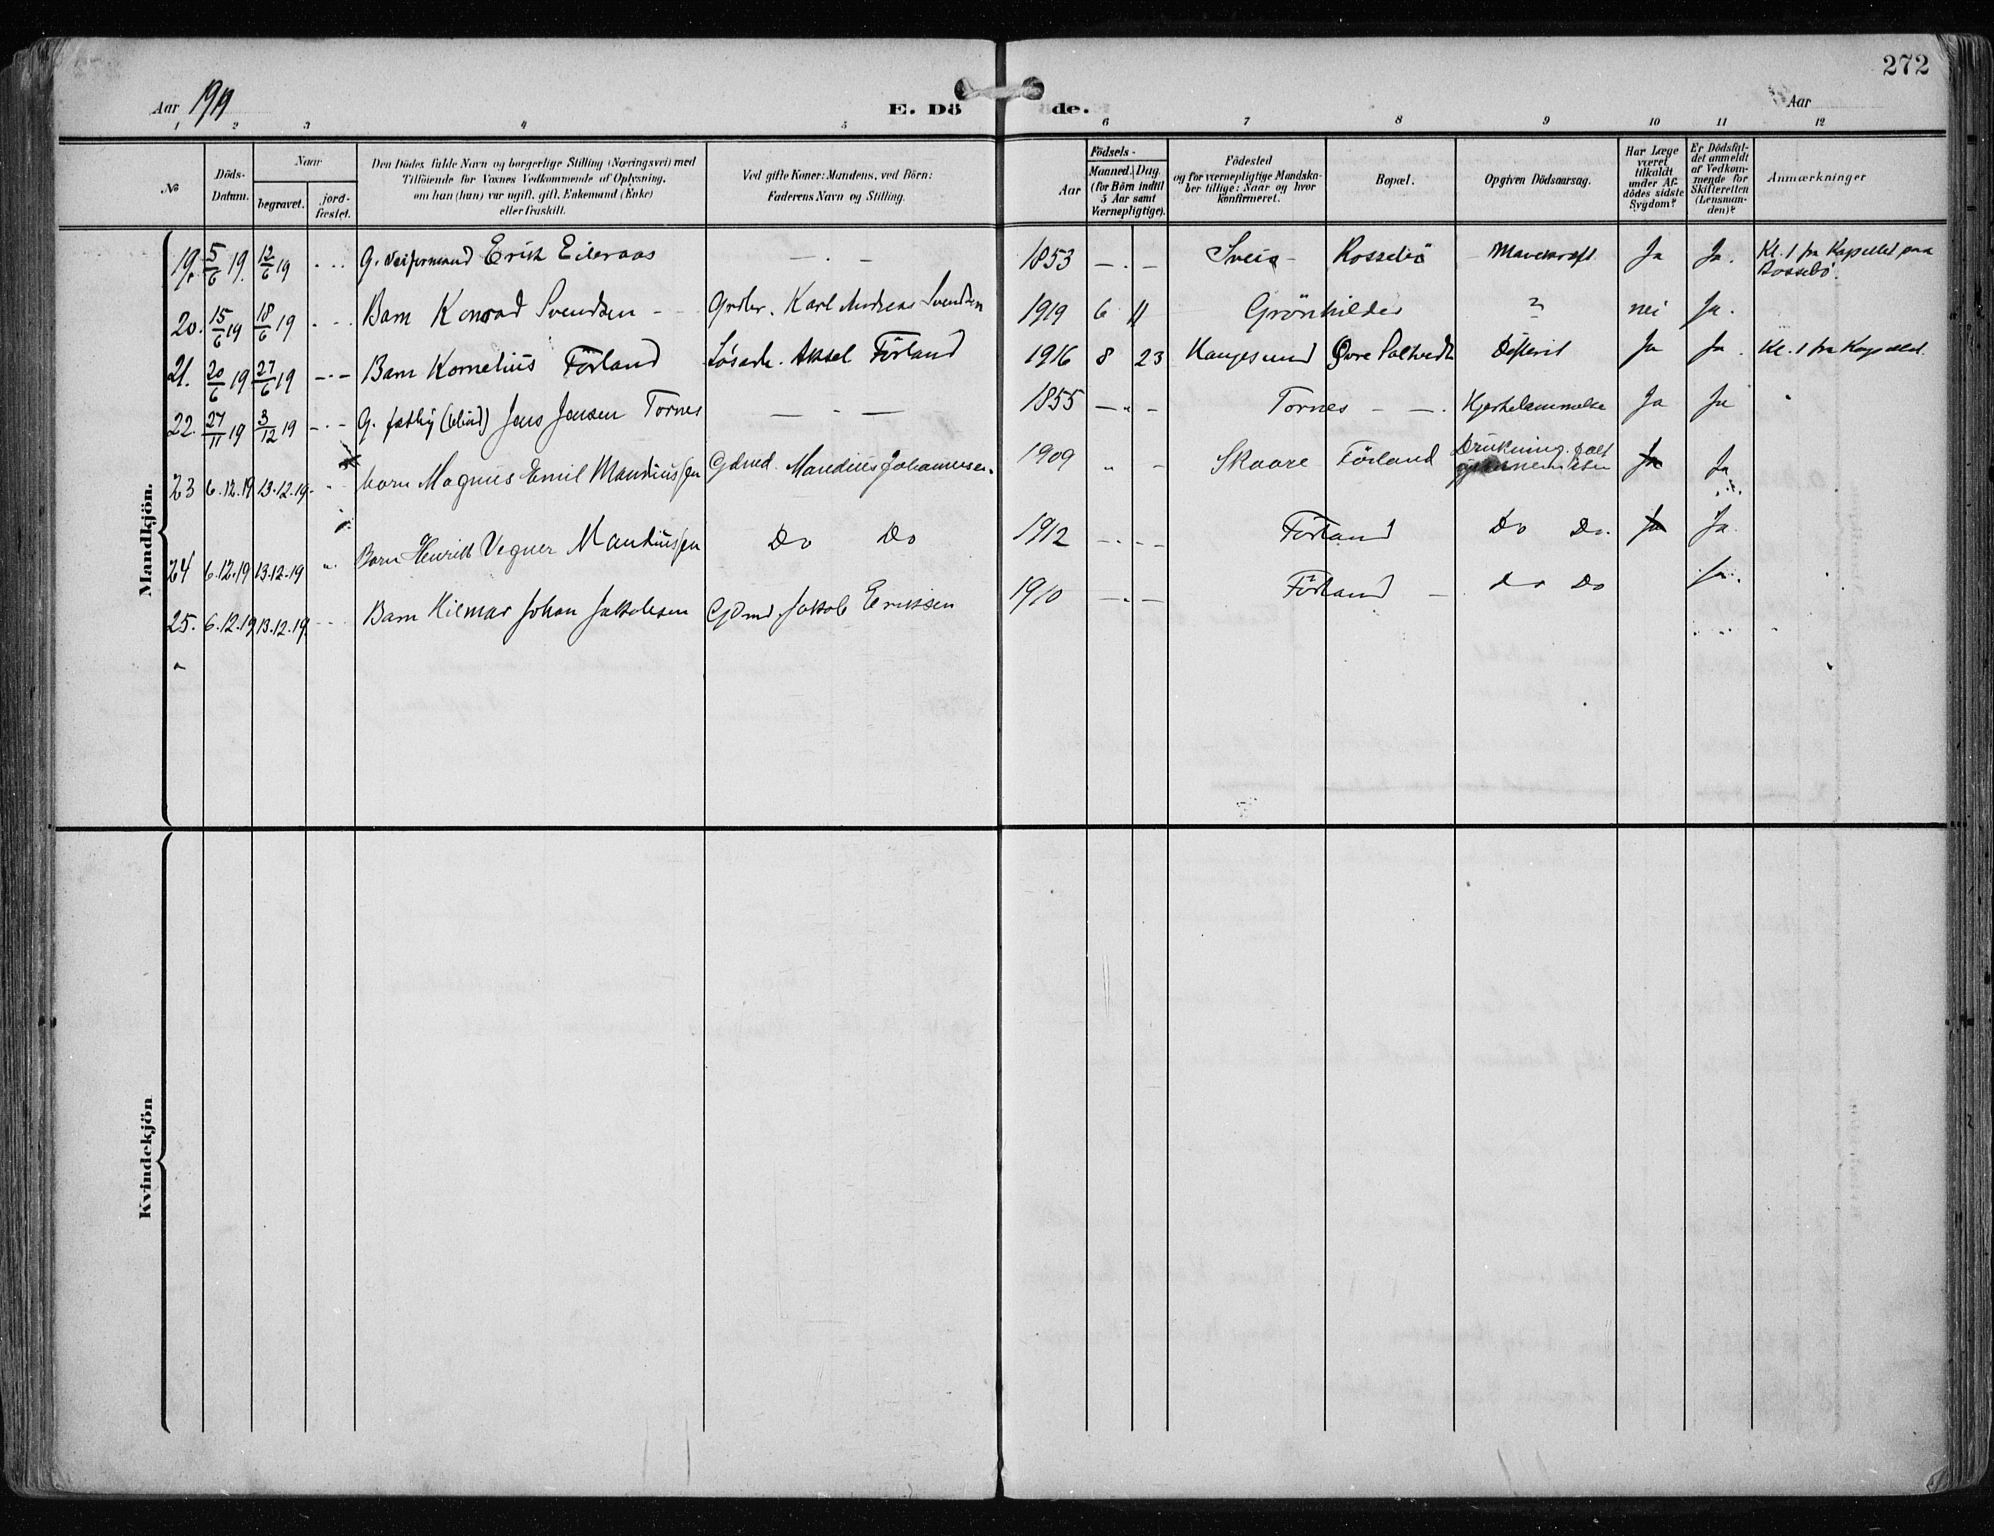 272
Aar 1919
E. Dö
de.
Aar
1 2 3 4 5 6 7 8 9 10 11 12
No
Döds-
Datum.
Naar
begravet.
jord-
fæstet.
Den Dödes fulde Navn og borgerlige Stilling (Næringsvei) med
Tilföiende for Voxnes Vedkommende af Oplysning,
om han (hun) var ugift, gift, Enkemand (Enke)
eller fraskilt.
Ved gifte Koner: Mandens, ved Börn:
Faderens Navn og Stilling.
Aar
Födsels-
Maaned. Dag.
(for Börn indtil
5 Aar samt
Værnepligtige).
Födested
og for værnepligtige Mandska-
ber tillige: Naar og hvor
konfirmeret.
Bopæl.
Opgiven Dödsaarsag.
Har Læge
været
tilkaldt
under Af-
dödes sidste
Sygdom?
Er Dödsfal-
det anmeldt
af Vedkom-
mende for
Skifteretten
(Lensman-
den)?
Anmærkninger
Mandkjön.
19. 5/6 19. 12/6 19 G. Erik Eileraas — . — 1853 — . — Sveio - Rossebö Mavekræft Ja Ja. Kl. 1 fra Kapellet paa
Rossebö.
20. 15/6 19 18/6 19 Barn Konrad Svendsen Grdbr. Karl Andreas Svendsen 1919 6 11 Grönhilder ? nei Ja.
21. 20/6 19 27/6 19 - . - Barn Kornelius Förland Lösarb. Aksel Förland 1916 8 23 Haugesund Övre Saltvedt Difterit Ja Ja. Kl. 1 fra Kapellet.
22. 27/11 19 3/12 19 - . - G. (blind) Jens Jensen Tornes — . — 1855 — . - Tornes - - . Hjertelammelse Ja Ja
23 6.12.19 13.12.19. barn Magnus Emil Mandiussen Gdmd. Mandius Johannesen. 1909 Skaare Förland Drukning. falt
Ja Ja
24 6.12.19 13.12.19 Barn Henrik Vegner Mandiussen Do Do 1912 - . - . - Förland Do Do. Ja Ja.
25. 6.12.19 13.12.19. Barn Hilmar Johan Jakobsen Gdmd. Jakob Eriksen 1910 — . — Förland - do Do Ja.
Kvindekjön